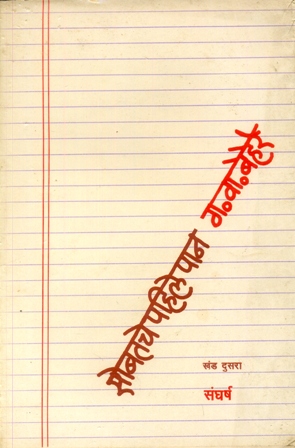 सोबतचे पहिले पान
ग. वा. बेहेरे
खंड दुसरा
संघर्ष